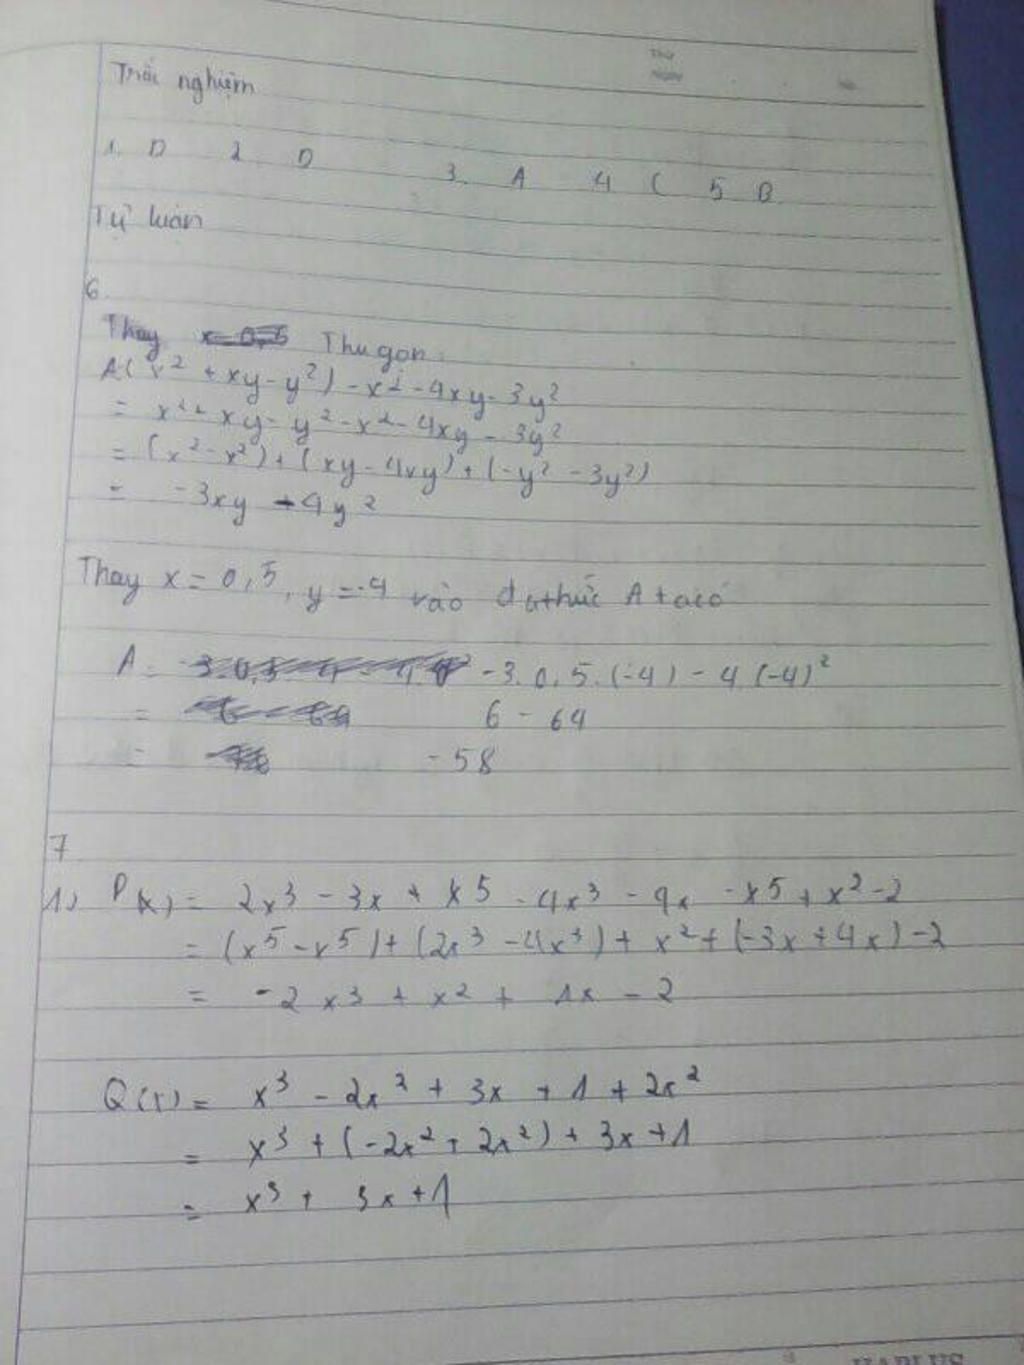 Thứ
Ngày
Trắc nghiệm
1. D 2 D 3. A 4 C 5 B
Tự luận
6.
Thay Thu gọn
A(x² + xy - y²) - x² - 4xy - 3y²
= x² + xy - y² - x² - 4xy - 3y²
= (x² - x²) + (xy - 4xy) + (-y² - 3y²)
= -3xy - 4y²
Thay x = 0,5, y = -4 vào đa thức A ta có
A = -3.0,5.(-4) - 4(-4)²
= 6 - 64
= -58
7
1) P(x) = 2x³ - 3x + x5 - 4x³ - 4x - x5 + x² - 2
= (x5 - x5) + (2x³ - 4x³) + x² + (-3x + 4x) - 2
= -2x³ + x² + 1x - 2
Q(x) = x³ - 2x² + 3x + 1 + 2x²
= x³ + (-2x² + 2x²) + 3x + 1
= x³ + 3x + 1